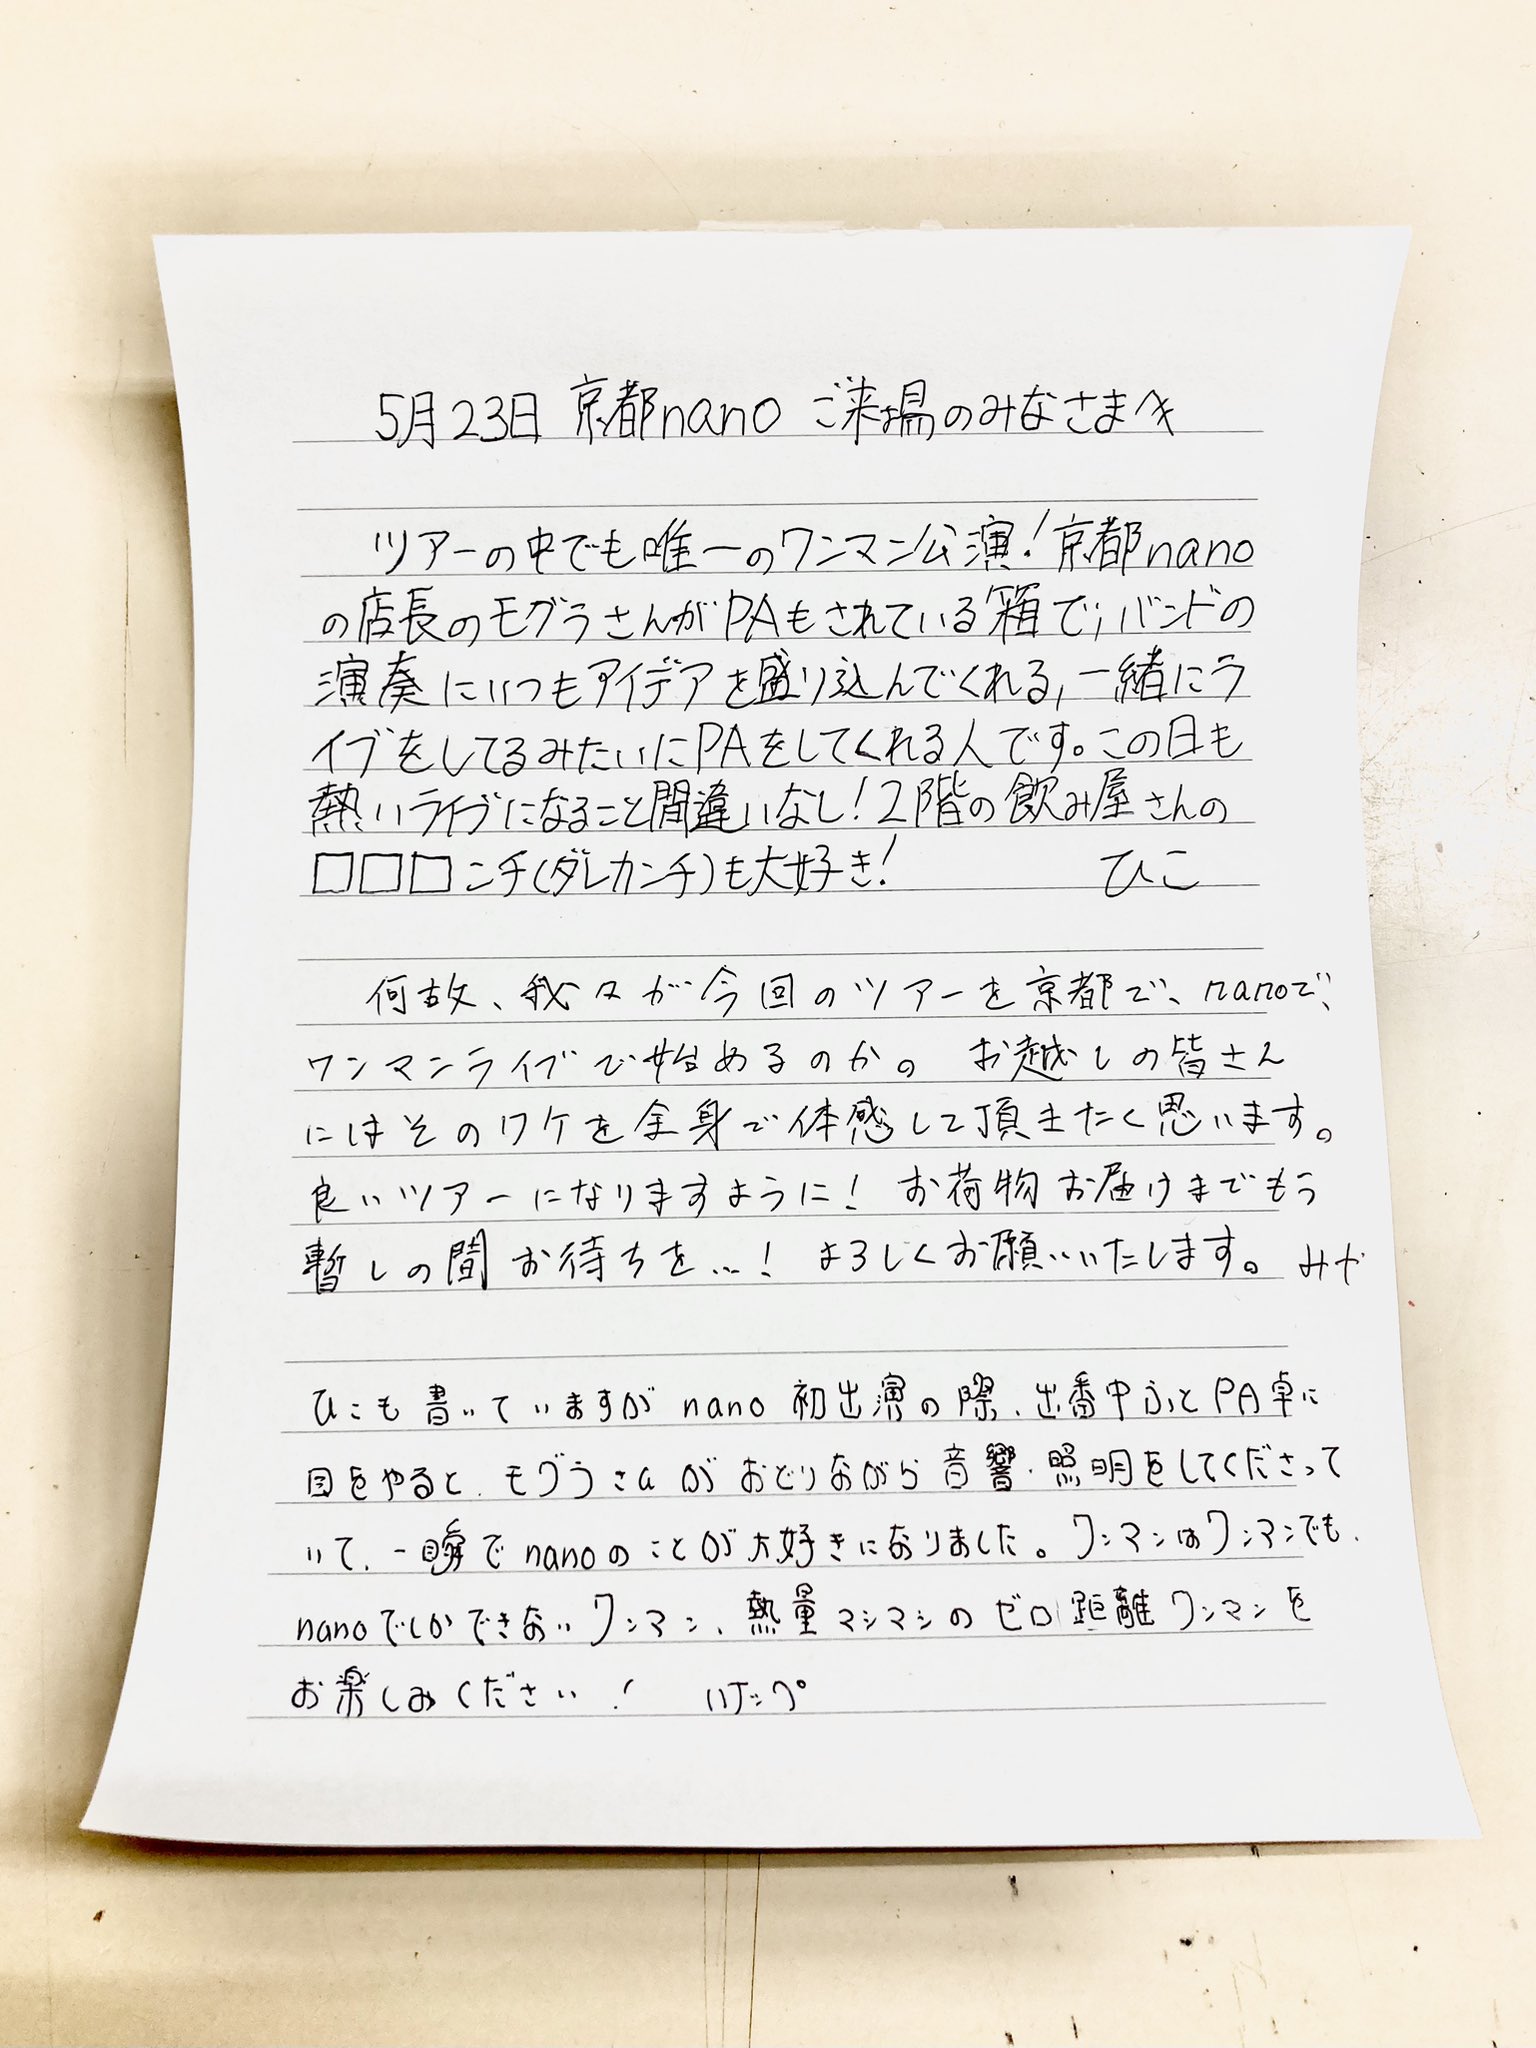 5月23日 京都nano ご来場のみなさまへ
ツアーの中でも唯一のワンマン公演!京都nano
の店長のモグラさんがPAもされている箱で、バンドの
演奏にいつもアイデアを盛り込んでくれる、一緒にラ
イブをしてるみたいにPAをしてくれる人です。この日も
熱いライブになること間違いなし!2階の飲み屋さんの
□□□ンチ(ダレカンチ)も大好き! ひこ
何故、我々が今回のツアーを京都で、nanoで、
ワンマンライブで始めるのか。お越しの皆さん
にはそのワケを全身で体感して頂きたく思います。
良いツアーになりますように! お荷物お届けまでもう
暫しの間お待ちを...! よろしくお願いいたします。 みや
ひこも書いていますがnano初出演の際、出番中ふとPA卓に
目をやると、モグラさんがおどりながら音響・照明をしてくださって
いて、一瞬でnanoのことが大好きになりました。ワンマンはワンマンでも、
nanoでしかできないワンマン、熱量マシマシのゼロ距離ワンマンを
お楽しみください! けっぺ